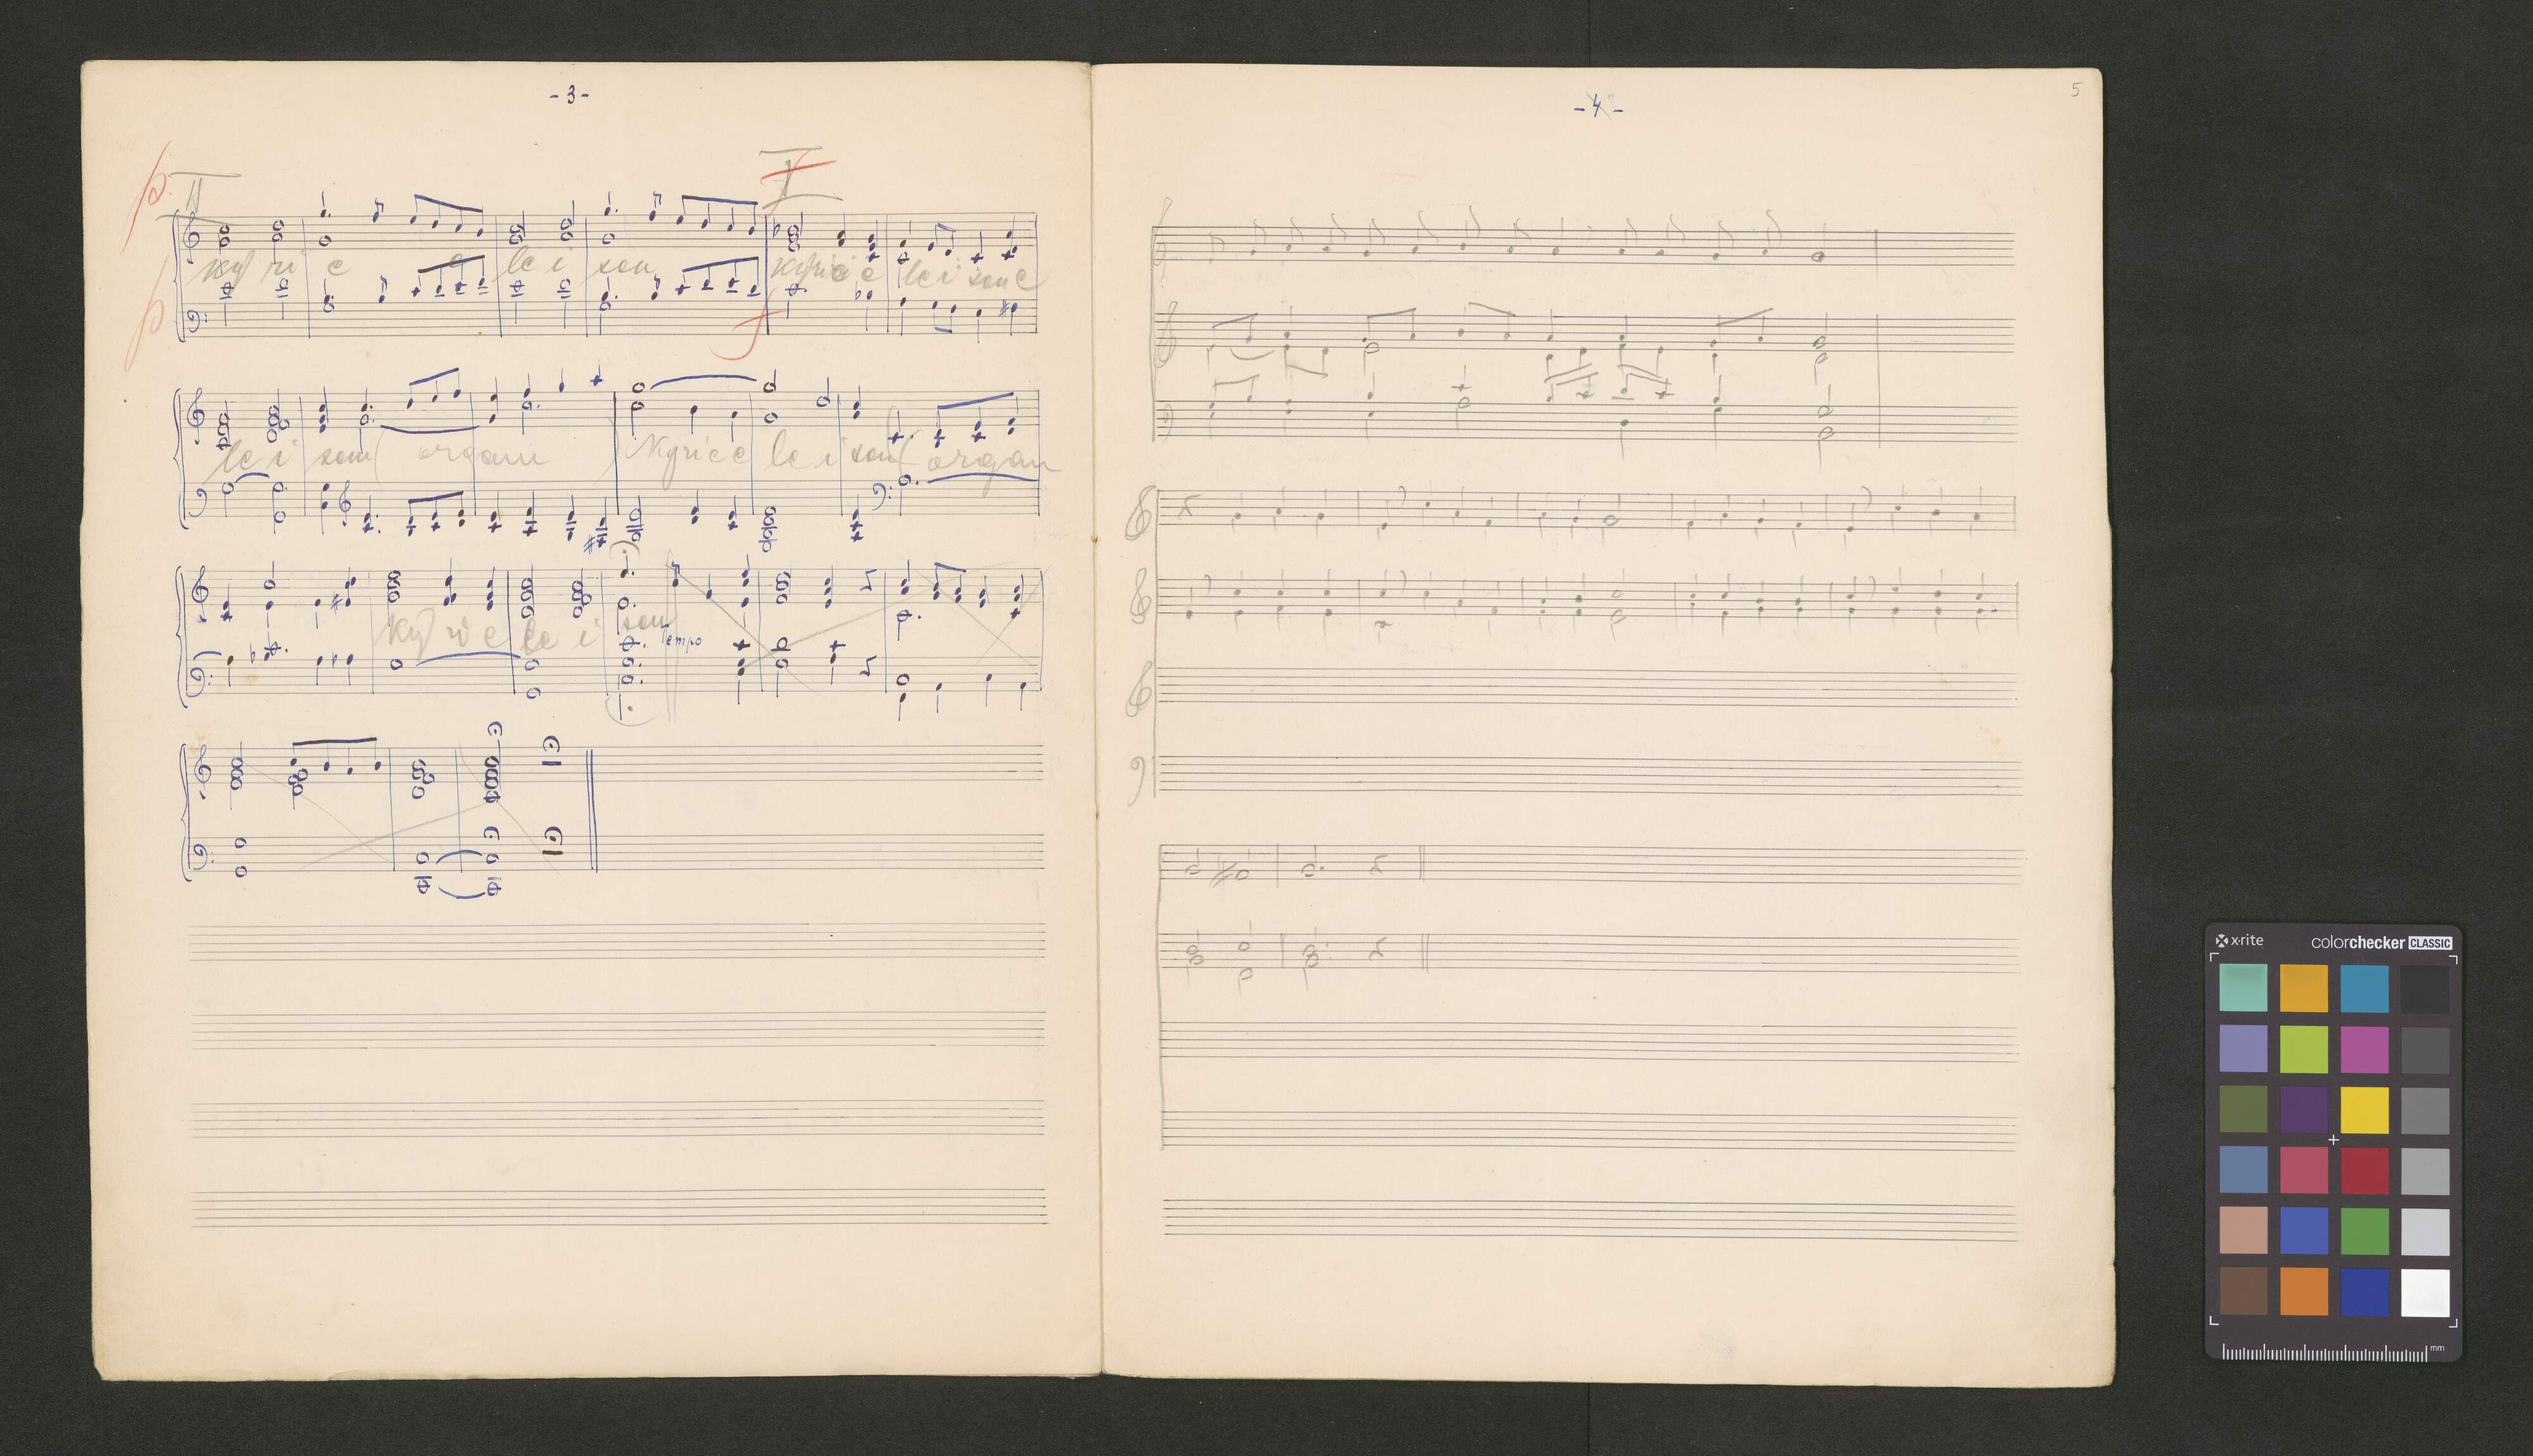 - 3 -
p II I f
Ky ri e e le i son Kyrie e le i son e
p f
le i son (organ) Kyrie e le i son (organ
Ky ri e e le i son
Tempo
- 4 -
5
x-rite colorchecker CLASSIC
mm